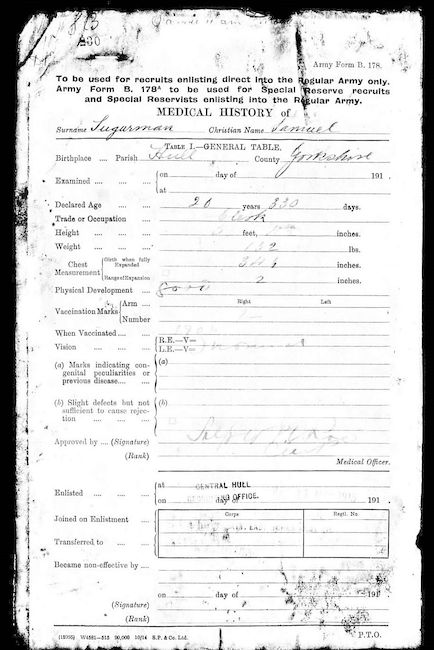 Army Form B. 178.
To be used for recruits enlisting direct into the Regular Army only.
Army Form B. 178A to be used for Special Reserve recruits
and Special Reservists enlisting into the Regular Army.
MEDICAL HISTORY of
Surname Sugarman Christian Name Samuel
TABLE I.—GENERAL TABLE.
Birthplace .... Parish Hull County Yorkshire
Examined .... on day of 191
at
Declared Age .... 20 years 330 days.
Trade or Occupation .... Clerk
Height .... feet, inches.
Weight .... 132 lbs.
Chest Measurement Girth when fully Expanded 34½ inches.
Range of Expansion 2 inches.
Physical Development .... Good
Right Left
Vaccination Marks Arm ....
Number
When Vaccinated ....
Vision .... R.E.—V=
L.E.—V=
(a) Marks indicating congenital peculiarities or previous disease.... (a)
(b) Slight defects but not sufficient to cause rejection .... (b)
Approved by .... (Signature)
(Rank)
Medical Officer.
Enlisted .... at CENTRAL HULL
on day of OFFICE. 191
Corps Regtl. No.
Joined on Enlistment ....
Transferred to ....
Became non-effective by ....
on day of 191
(Signature)
(Rank)
W4581—515 90,000 10/14 S.P. & Co. Ltd. P.T.O.